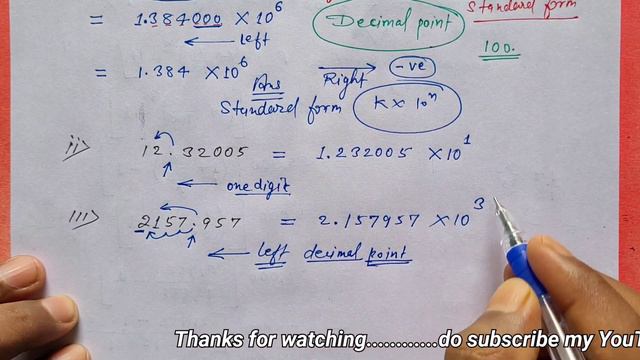 = 1.384000 × 10⁶
Decimal point
Standard form
100.
← left
= 1.384 × 10⁶
Ans
Right →
-ve
Standard form K × 10ⁿ
ii> 12.32005 = 1.232005 × 10¹
← one digit
iii> 2157.957 = 2.157957 × 10³
← left decimal point
Thanks for watching............do subscribe my YouT